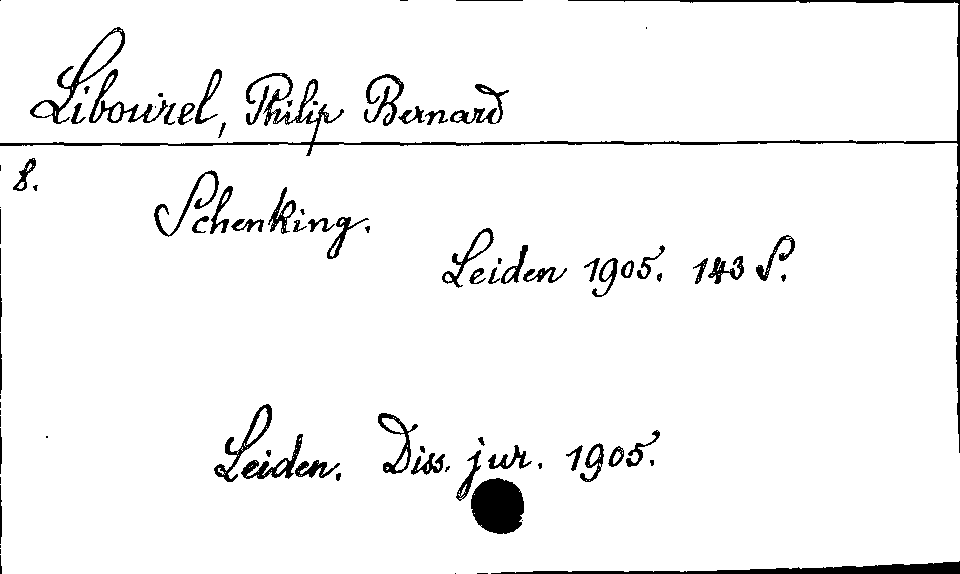 Libourel, Philip Bernard
8.
Schenking.
Leiden 1905. 143 S.
Leiden. Diss. jur. 1905.